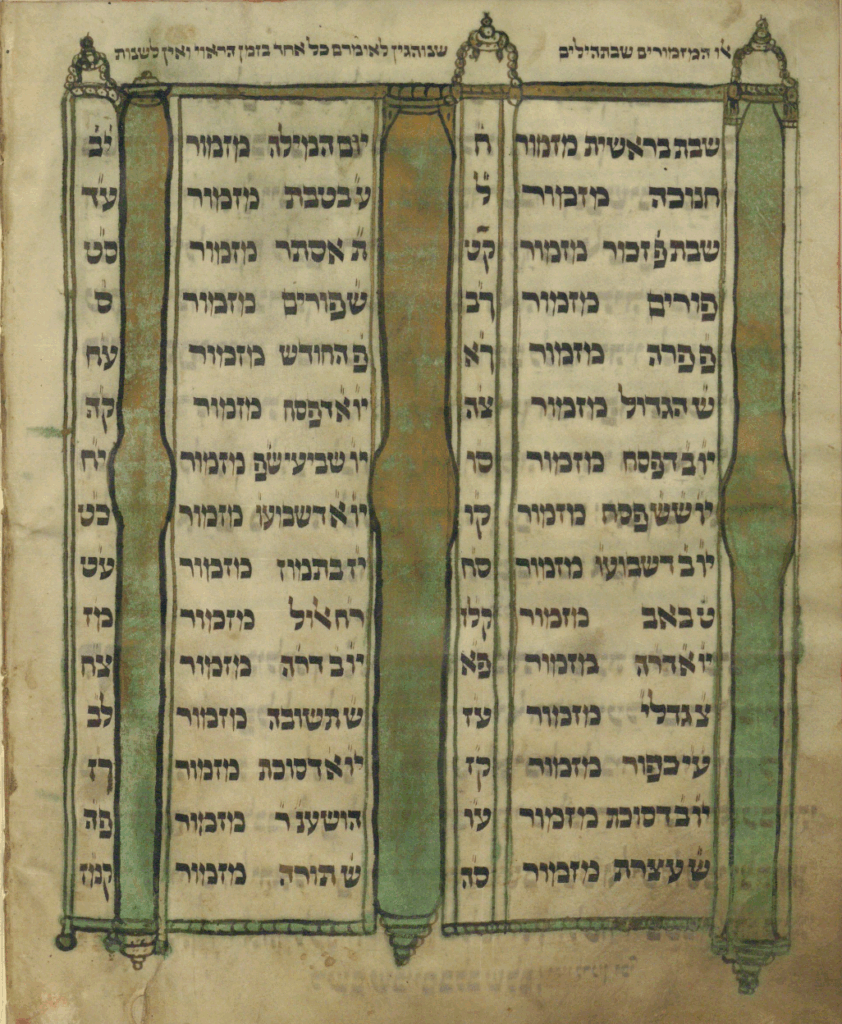 אלו המזמורים שבתהילים שנוהגין לאומרם כל אחד בזמן הראוי ואין לשנות
שבת בראשית מזמור ח יום המילה מזמור יב
חנוכה מזמור ל ע בטבת מזמור עד
שבת פ זכור מזמור קט ת אסתר מזמור סט
פורים מזמור כב ש פורים מזמור ס
פ פרה מזמור נא פ החודש מזמור עח
ש הגדול מזמור צה יו א דפסח מזמור קה
יו ב דפסח מזמור סו יו שביעי שפ מזמור יח
יו ש ש פסח מזמור קו יו א דשבועו מזמור כט
יו ב דשבועו מזמור סח יז בתמוז מזמור עט
ט באב מזמור קלז ר ח אלול מזמור מז
יו א דרה מזמור פא יו ב דרה מזמור צח
צ גדלי מזמור עז ש תשובה מזמור לב
ע י כפור מזמור קז יו א דסוכת מזמור
יו ב דסוכת מזמור עו הושענ ר מזמור פה
ש עצרת מזמור סה ש תורה מזמור קמז